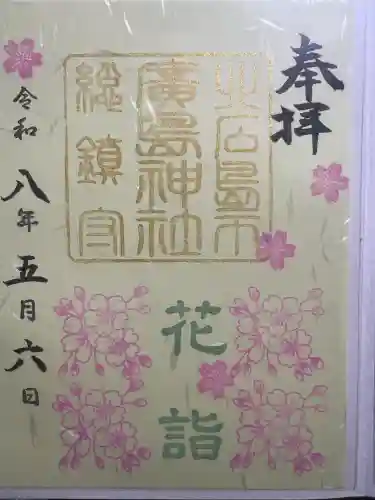 奉拝
廣島神社
総鎮守
花詣
令和八年五月六日